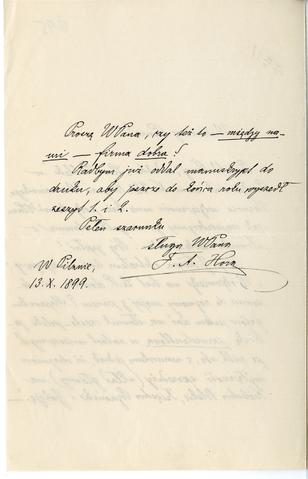 Proszę WPana, czy też to — między na-
mi — firma dobra?
Radbym już oddał manuskrypt do
druku, aby jeszcze do końca roku wyszedł
zeszyt 1. i 2.
Pełen szacunku
sługa WPana
F. A. Hora
W Pilznie,
13. X. 1899.